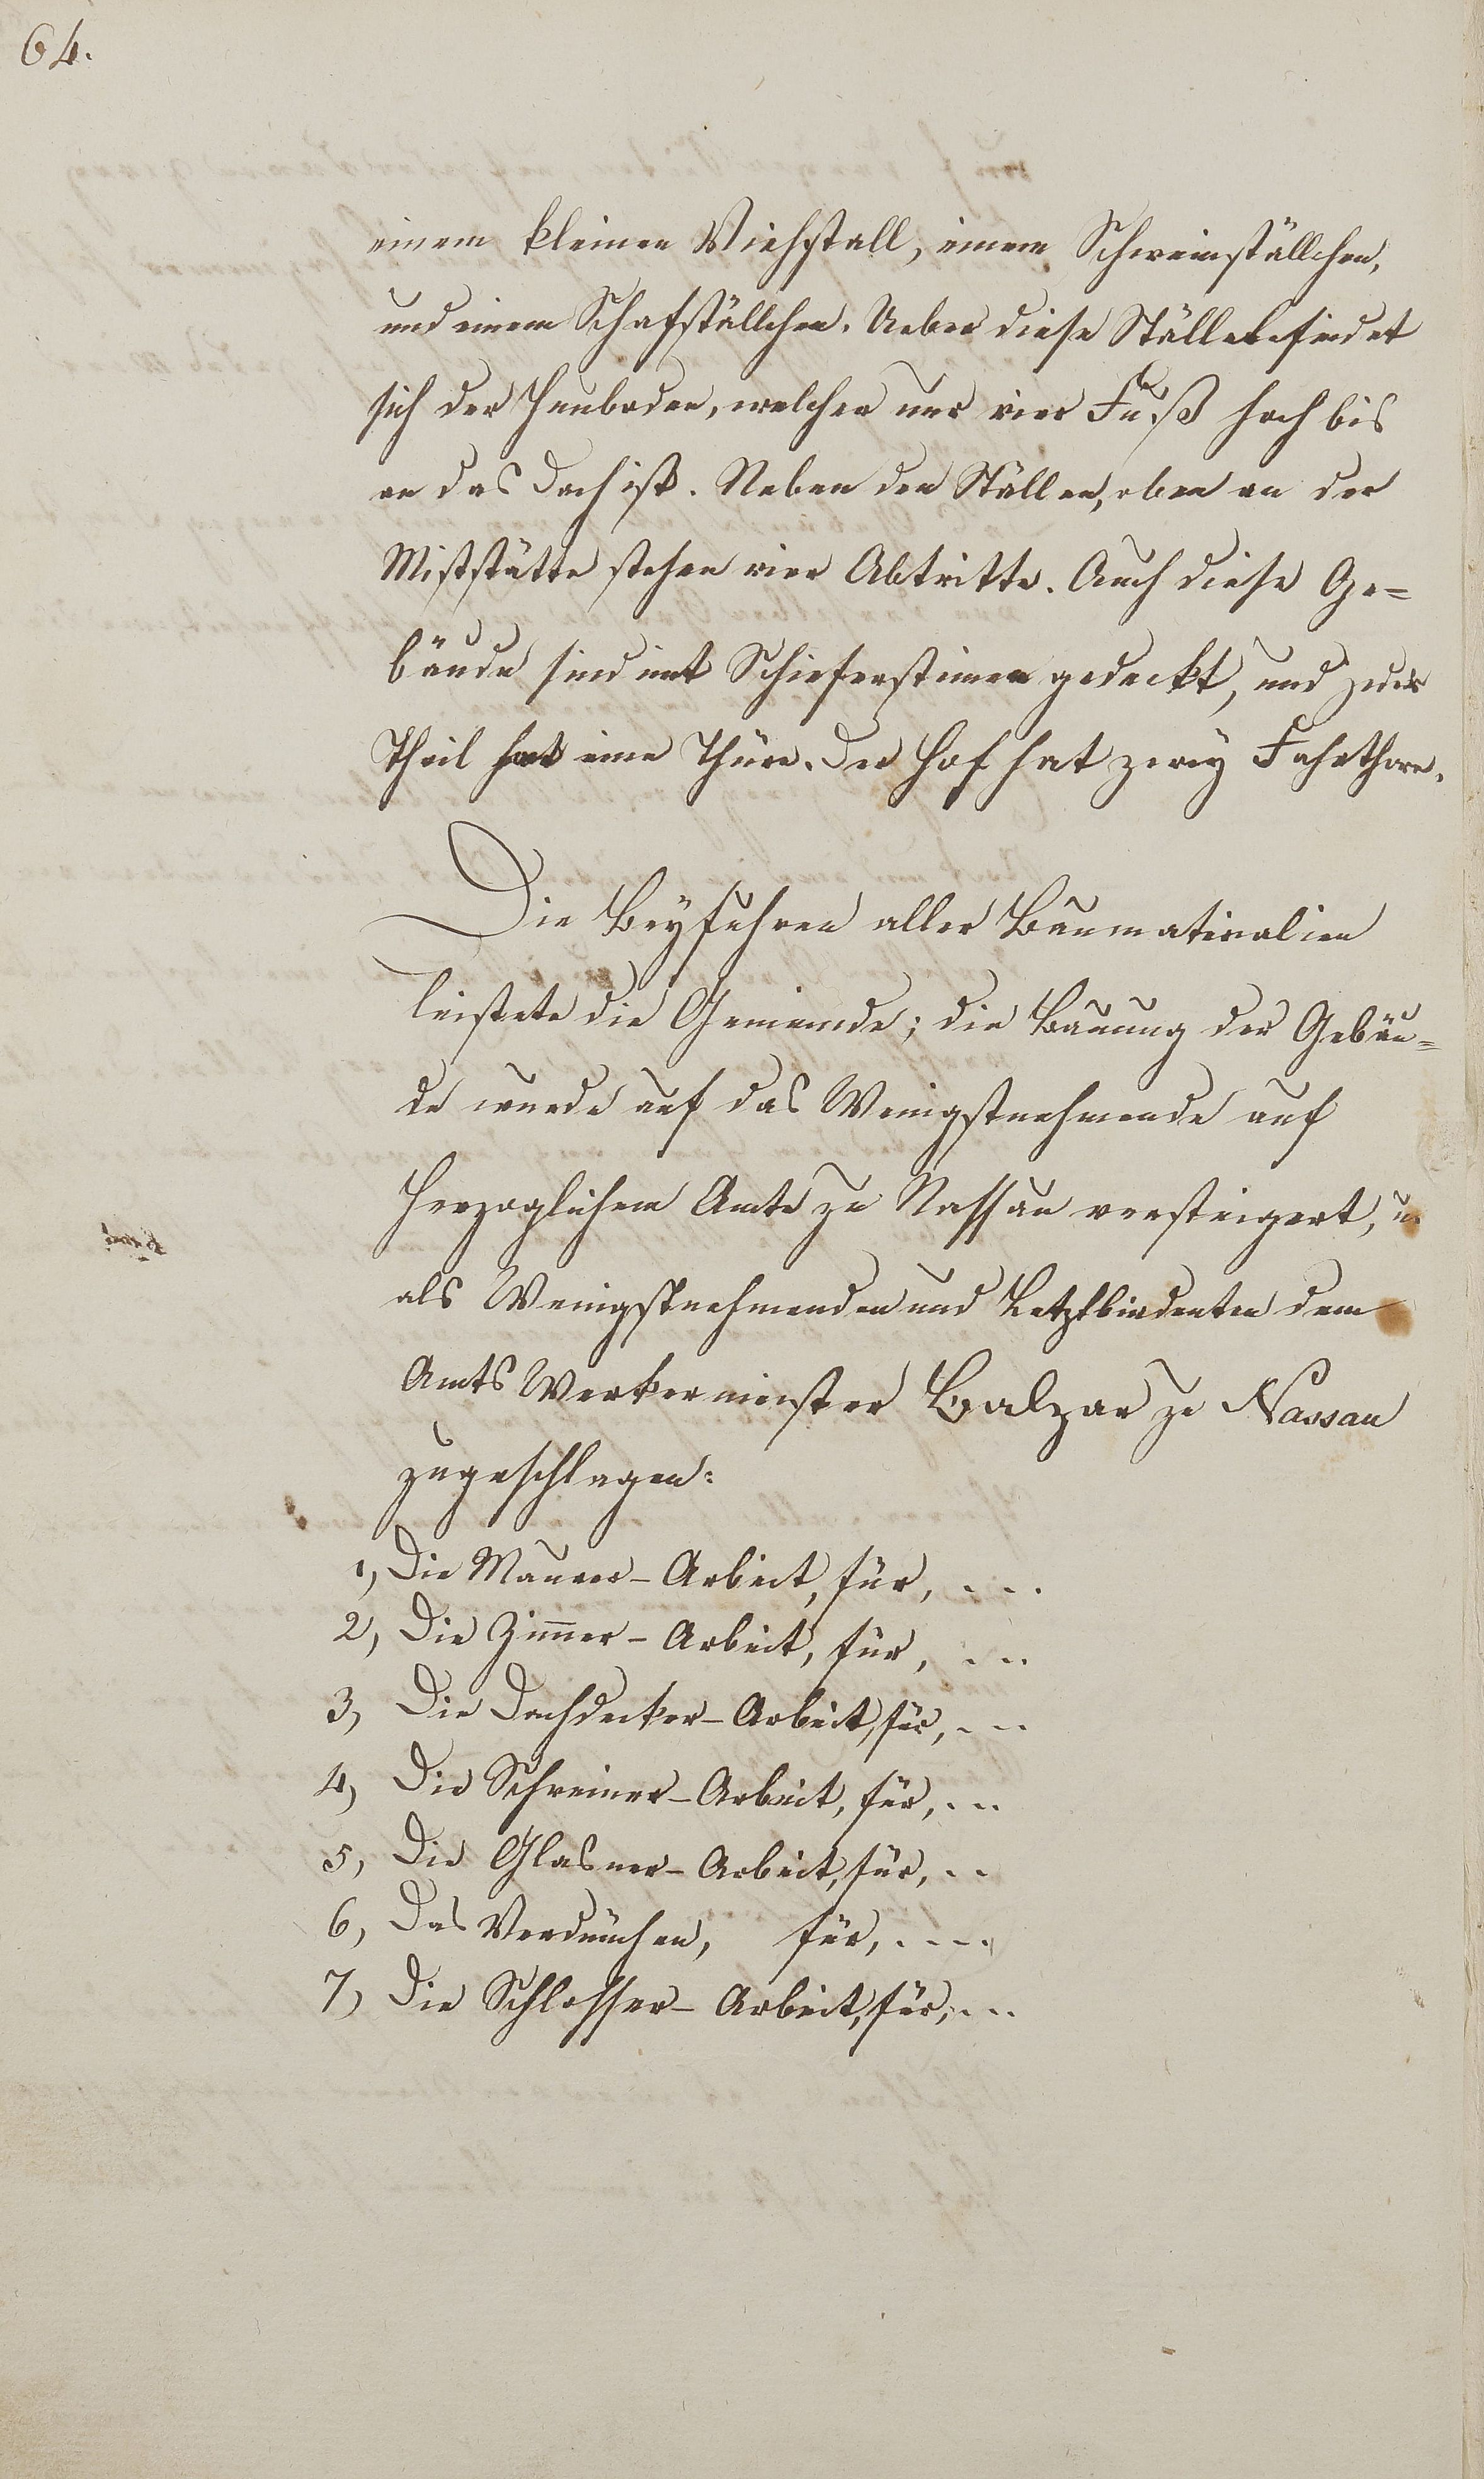 64.
einem kleinen Viehstall, einem Schweinställchen,
und einem Schafställchen. Ueber diese Ställe befindet
sich der Heuboden, welcher nur vier Fuß hoch bis
an das Dach ist. Neben den Ställen, oben an der
Miststätte stehen vier Abtritte. Auch diese Ge=
bäude sind mit Schiefersteinen gedeckt, und jeder
Theil hat eine Thüre. Der Hof hat zwey Fahrthore.
Die Beyfuhren aller Baumaterialien
leistete die Gemeinde; die Bauung der Gebäu=
de wurde auf das Wenigstnehmende auf
Herzoglichem Amte zu Nassau versteigert, u.
als Wenigstnehmenden und Letztbiedenten dem
Amts Werkermeister Balzar zu Nassau
zugeschlagen:
1, Die Maurer-Arbeit, für, ...
2, Die Zimmer-Arbeit, für, ...
3, Die Dachdecker-Arbeit, für, ...
4, Die Schreiner-Arbeit, für, ...
5, Die Glasner-Arbeit, für, ..
6, Das Verdünchen, für, ....
7, Die Schlosser-Arbeit, für, ...